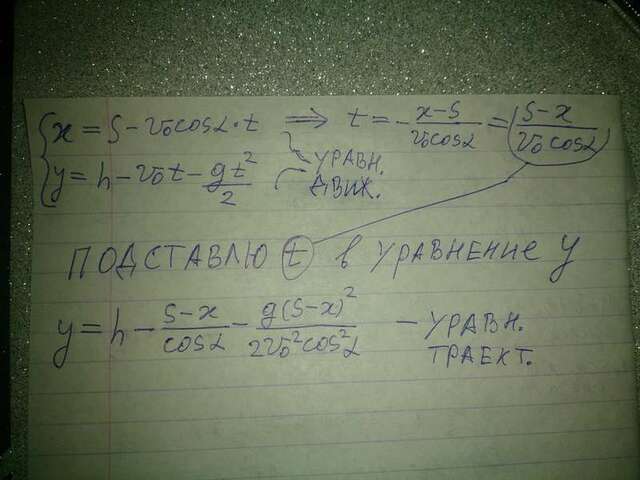 { x = S - v₀cosα·t ⟹ t = - (x-S)/(v₀cosα) = (S-x)/(v₀cosα)
y = h - v₀t - gt²/2
УРАВН.
ДВИЖ.
ПОДСТАВЛЮ t в УРАВНЕНИЕ y
y = h - (S-x)/(cosα) - g(S-x)²/(2v₀²cos²α) - УРАВН.
ТРАЕКТ.